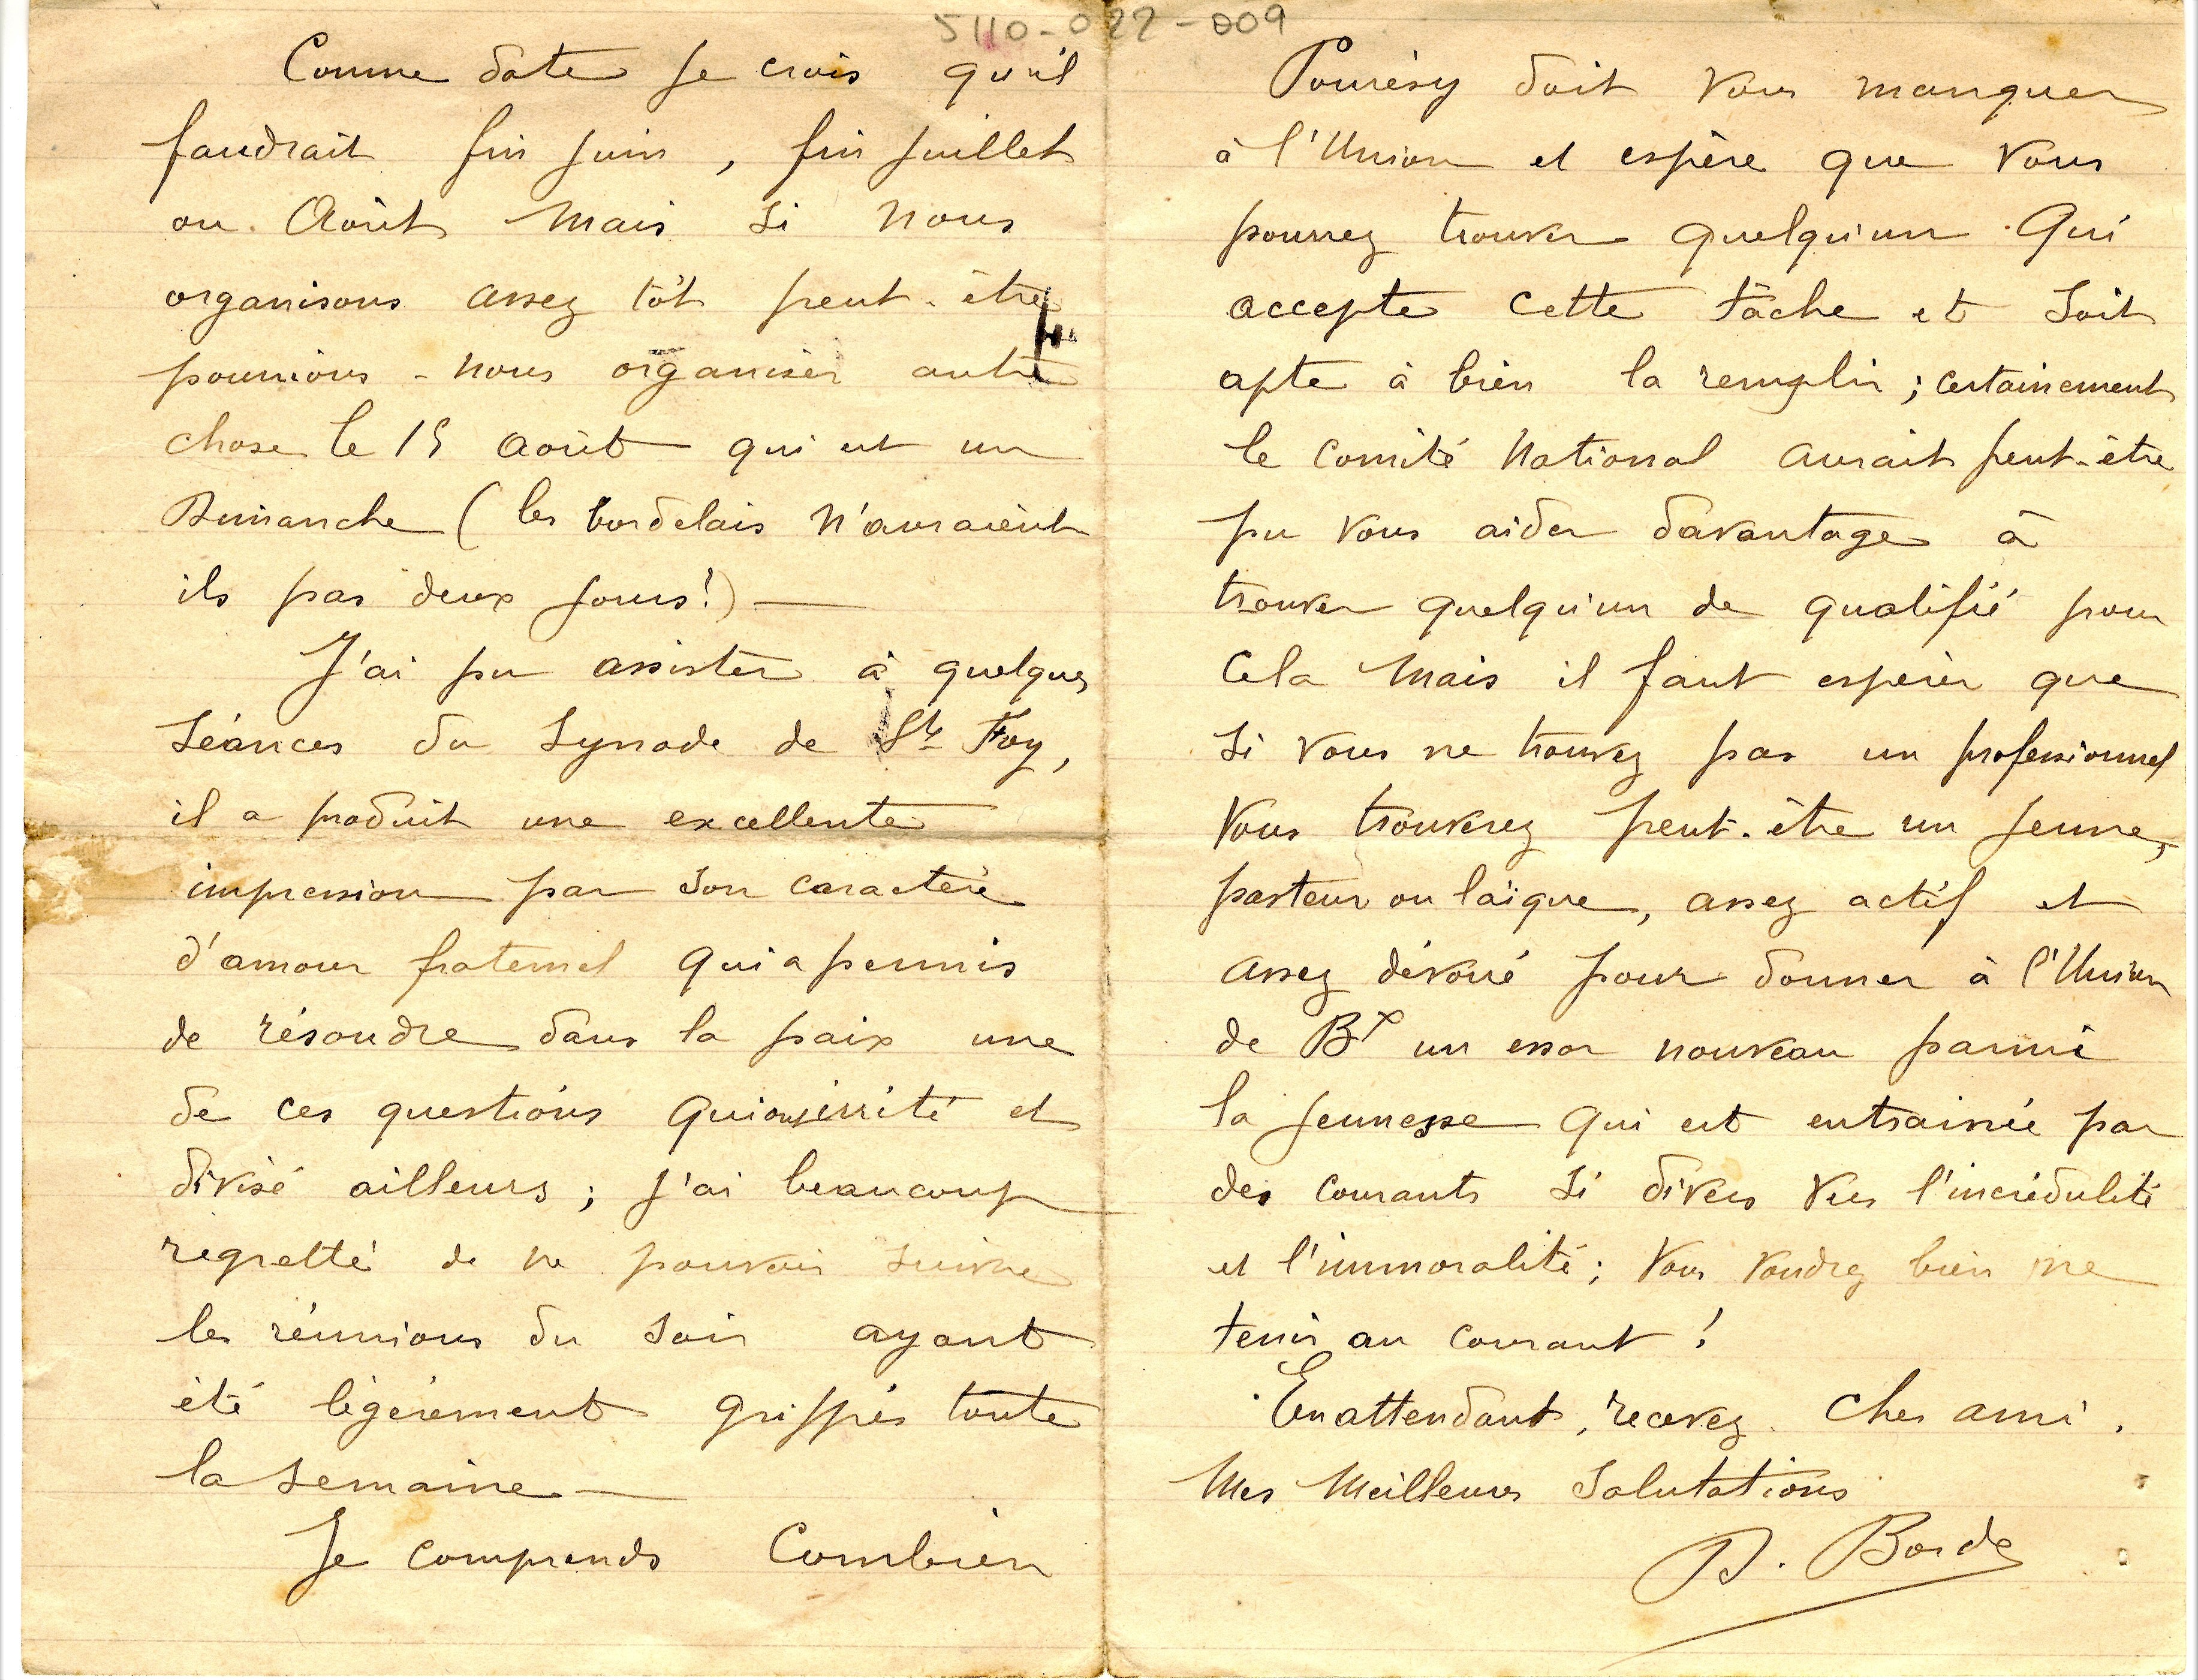 5110-022-009
Comme date je crois qu'il
faudrait fin juin, fin juillet
ou Août mais si nous
organisons assez tôt peut-être
pourrions-nous organiser autre
chose le 15 août qui est un
Dimanche (les bordelais n'auraient
ils pas deux jours!) —
J'ai pu assister à quelques
séances du synode de Ste Foy,
il a produit une excellente
impression par son caractère
d'amour fraternel qui a permis
de résoudre dans la paix une
de ces questions qui ont irrité et
divisé ailleurs; j'ai beaucoup
regretté de ne pouvoir suivre
les réunions du soir ayant
été légèrement grippés toute
la semaine —
Je comprends Combien
Pourésy doit vous manquer
à l'Union et espère que vous
pourrez trouver quelqu'un qui
accepte cette tâche et soit
apte à bien la remplir; certainement
le comité National aurait peut-être
pu vous aider davantage à
trouver quelqu'un de qualifié pour
cela mais il faut espérer que
si vous ne trouvez pas un professionnel
vous trouverez peut-être un jeune,
pasteur ou laïque, assez actif et
assez dévoué pour donner à l'Union
de Bx un essor nouveau parmi
la jeunesse qui est entrainée par
des courants si divers vers l'incrédulité
et l'immoralité; vous voudrez bien me
tenir au courant!
En attendant, recevez cher ami,
mes meilleures salutations
D. Borde